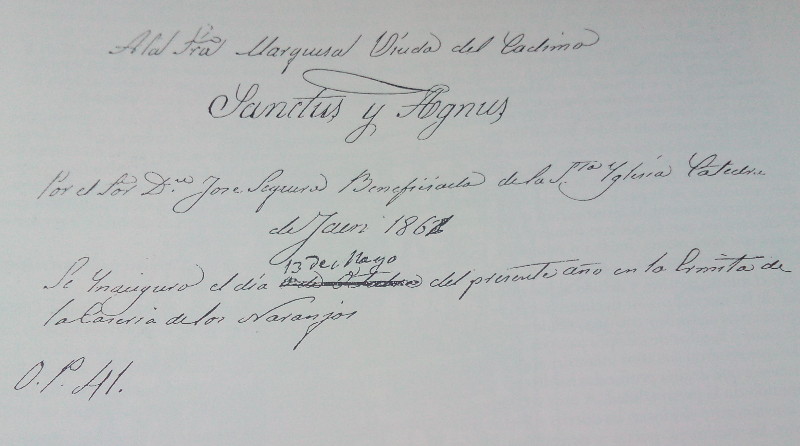 A la Sra Marquesa Viuda del Cadimo
Sanctus y Agnus
Por el Sor Dn Jose Segura Beneficiado de la Sta Yglesia Catedral
de Jaen 1862
13 de Mayo
Se Ynauguro el día del presente año en la Ermita de
la Caseria de los Naranjos
O. P. 41.